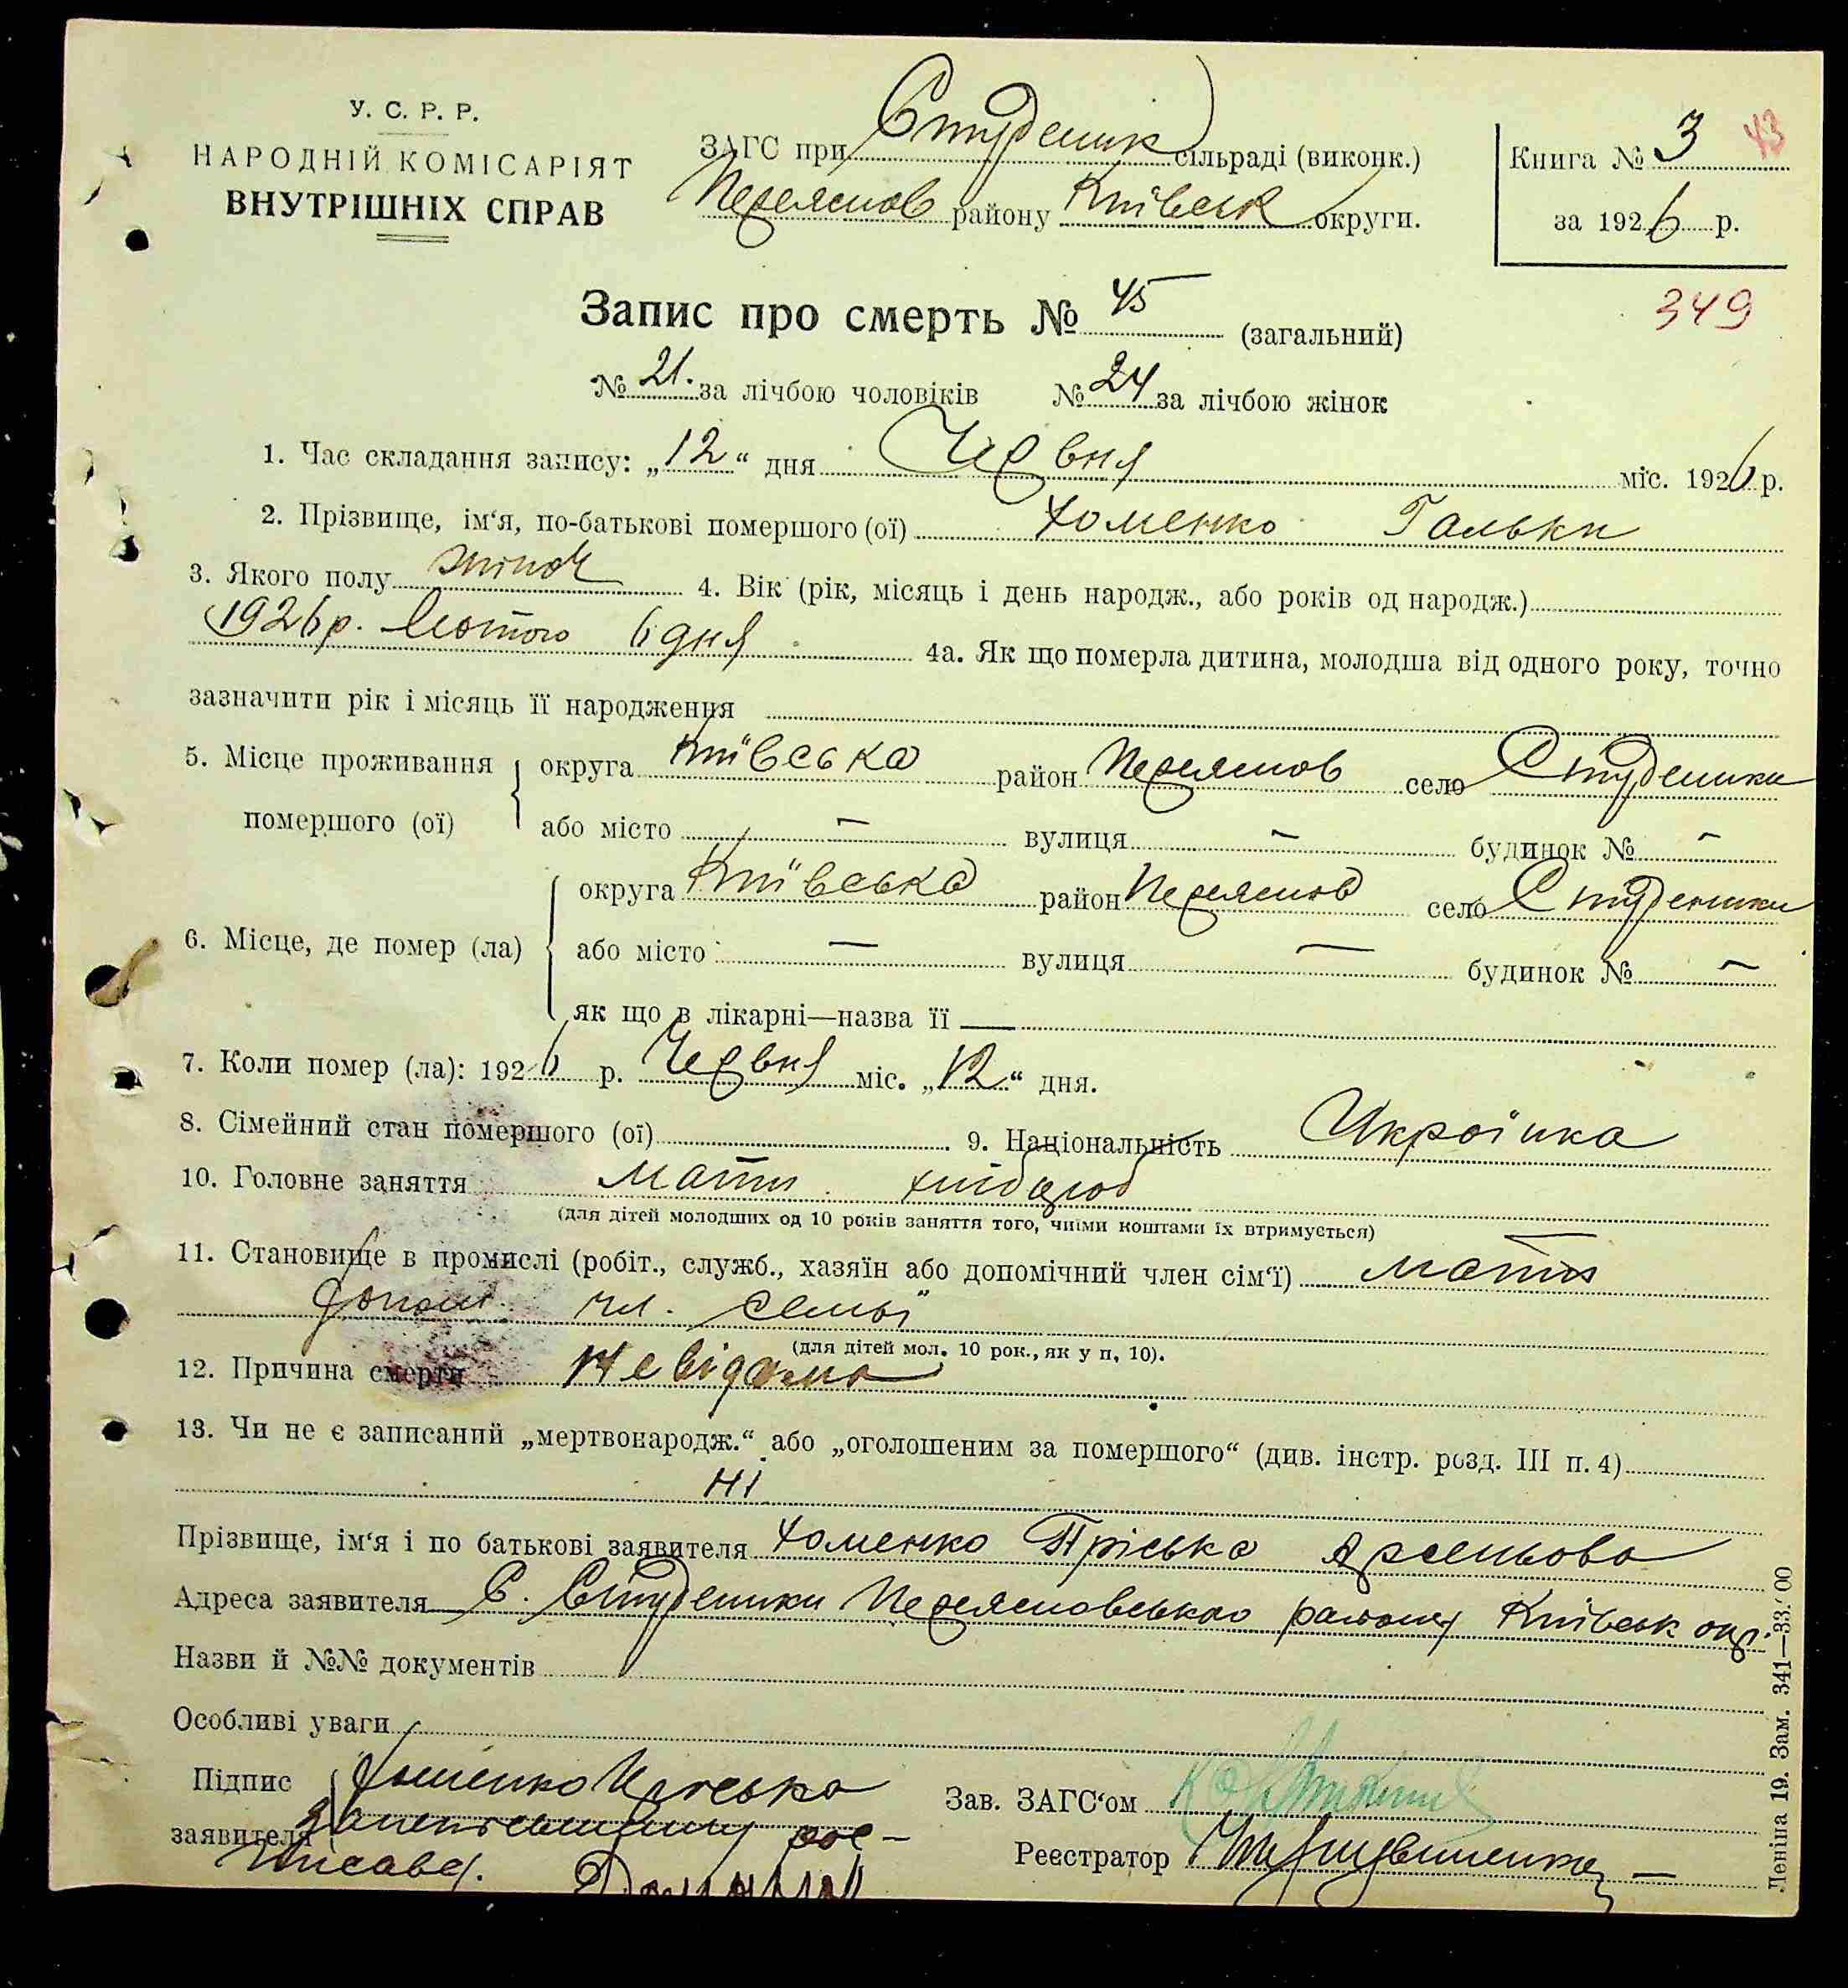 У. С. Р. Р.
НАРОДНІЙ КОМІСАРІЯТ
ВНУТРІШНІХ СПРАВ
ЗАГС при Студеник сільраді (виконк.)
Переяслов району Київськ округи.
Книга № 3 43
за 1926 р.
349
Запис про смерть № 45 (загальний)
№ 21. за лічбою чоловіків № 24 за лічбою жінок
1. Час складання запису: „12“ дня Червня міс. 1926 р.
2. Прізвище, ім‘я, по-батькові помершого (ої) Хоменко Гальки
3. Якого полу жіноч 4. Вік (рік, місяць і день народж., або років од народж.)
1926 р. Лютого 6 дня 4а. Як що померла дитина, молодша від одного року, точно
зазначити рік і місяць її народження
5. Місце проживання помершого (ої) округа Київська район Переяслов село Студеники
або місто — вулиця — будинок № —
6. Місце, де помер (ла) округа Київська район Переяслов село Студеники
або місто — вулиця — будинок № —
як що в лікарні—назва її —
7. Коли помер (ла): 1926 р. Червня міс. „12“ дня.
8. Сімейний стан помершого (ої) 9. Національність Украінка
10. Головне заняття мати хлібороб
(для дітей молодших од 10 років заняття того, чиїми коштами їх втримується)
11. Становище в промислі (робіт., служб., хазяїн або допомічний член сім‘ї) мати
допом. чл. семьї
(для дітей мол. 10 рок., як у п. 10).
12. Причина смерти Невідома
13. Чи не є записаний „мертвонародж.“ або „оголошеним за помершого“ (див. інстр. розд. III п. 4)
Ні
Прізвище, ім‘я і по батькові заявителя Хоменко Пріська Арсеньова
Адреса заявителя С. Студеники Переясловського району Київськ окр.
Назви й №№ документів
Особливі уваги
Підпис заявителя Хоменко
Зав. ЗАГС‘ом
Реєстратор
Леніна 19. Зам. 341—33.000